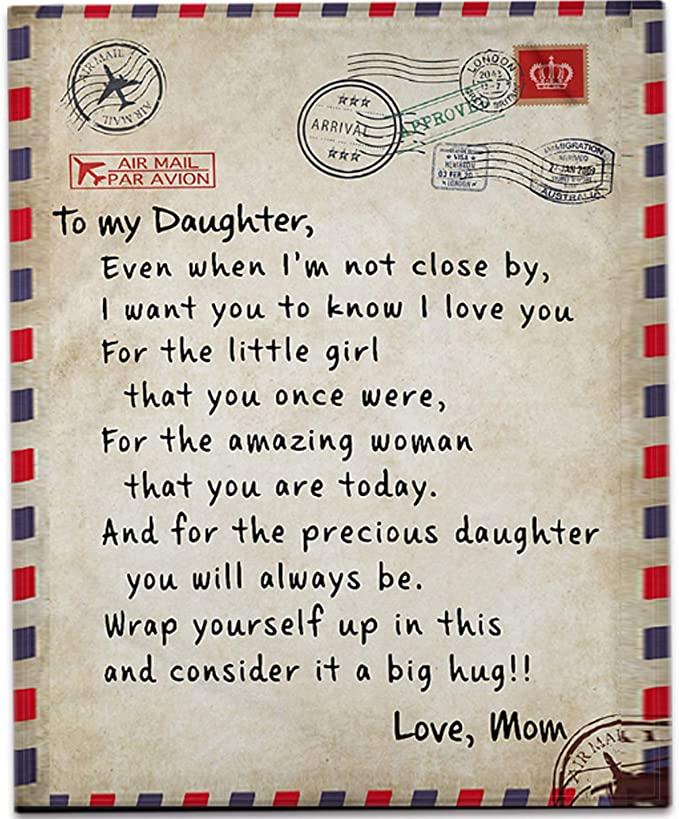 AIR MAIL
AIR MAIL
LONDON
GREAT BRITAIN
ARRIVAL
APPROVED
VISA
03 FEB 20
LONDON
IMMIGRATION
JAN 2009
AUSTRALIA
AIR MAIL
PAR AVION
To my Daughter,
Even when I'm not close by,
I want you to know I love you
For the little girl
that you once were,
For the amazing woman
that you are today.
And for the precious daughter
you will always be.
Wrap yourself up in this
and consider it a big hug!!
Love, Mom
AIR MAIL